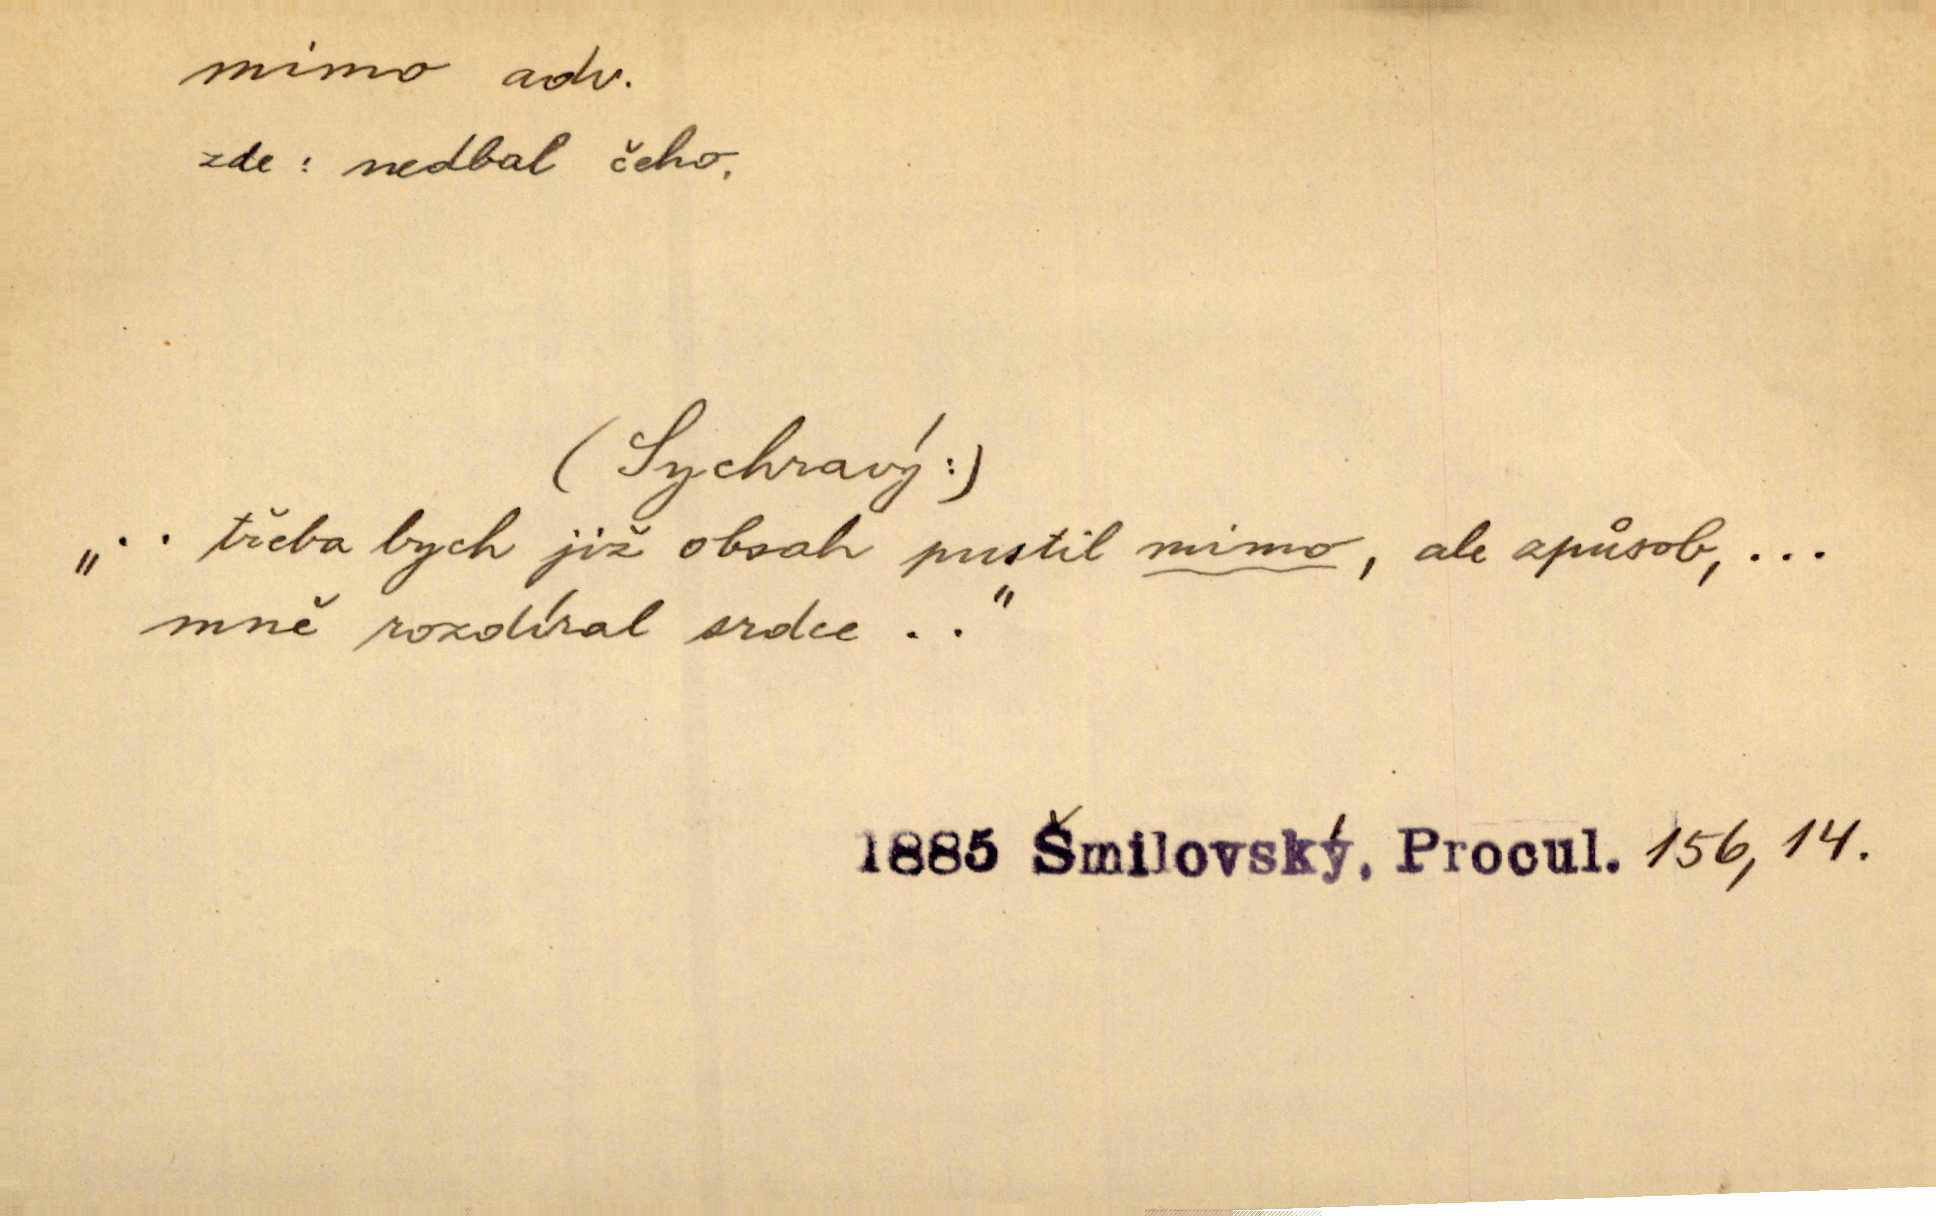 mimo adv.
zde: nedbal čeho.
(Sychravý:)
„.. třeba bych již obsah pustil mimo, ale způsob, ...
mně rozdíral srdce .."
1885 Šmilovský, Procul. 156, 14.